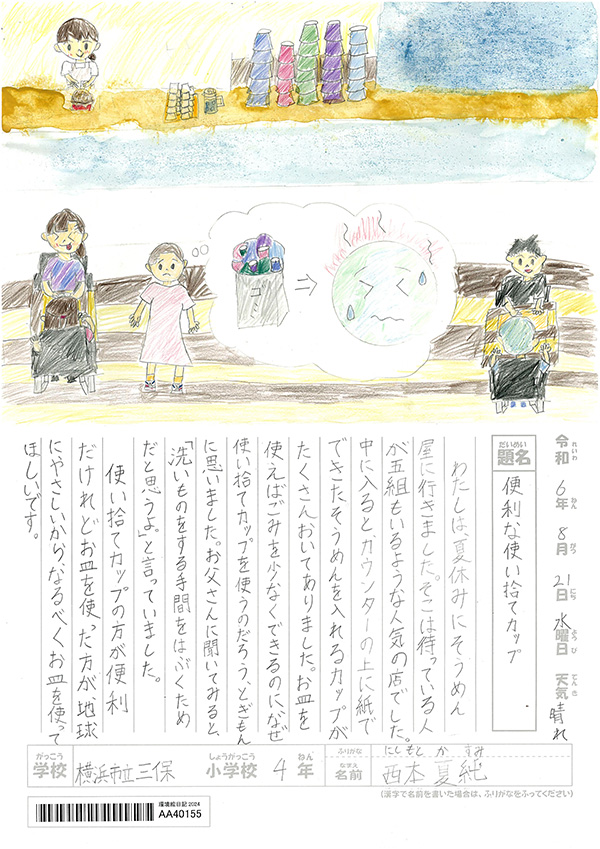 ゴミ
令和6年8月21日水曜日 天気晴れ
れいわ ねん がつ にち ようび てんき
だいめい
題名 便利な使い捨てカップ
わたしは、夏休みにそうめん
屋に行きました。そこは待っている人
が五組もいるような人気の店でした。
中に入るとカウンターの上に紙で
できたそうめんを入れるカップが
たくさんおいてありました。お皿を
使えばごみを少なくできるのになぜ
使い捨てカップを使うのだろう、とぎもん
に思いました。お父さんに聞いてみると、
「洗いものをする手間をはぶくため
だと思うよ。」と言っていました。
使い捨てカップの方が便利
だけれどお皿を使った方が、地球
にやさしいから、なるべくお皿を使って
ほしいです。
がっこう しょうがっこう ねん ふりがな にしもと かすみ
学校 横浜市立三保 小学校 4年 なまえ 名前 西本 夏純
(漢字で名前を書いた場合は、ふりがなをふってください)
環境絵日記2024
AA40155